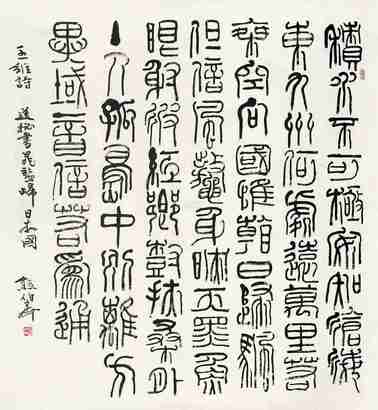 積水不可極安知滄海
東九州何處遠萬里若
乘空向國惟看日歸帆
但信風鰲身映天黑魚
眼射波紅鄉樹扶桑外
主人孤島中別離方
異域音信若為通
王維詩 送秘書晁監歸日本國